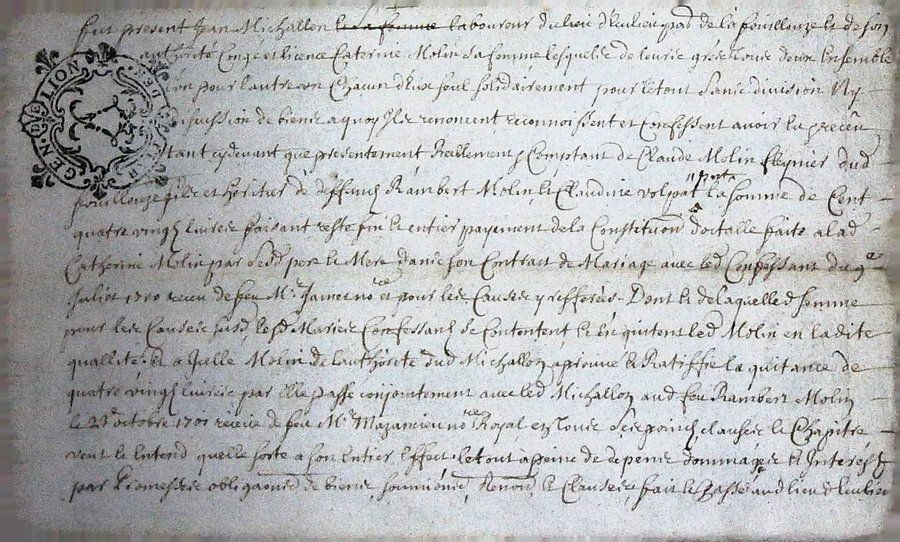 fut present Jean Michallon laboureur du lieu d'Eculieu par de la fouillouze & de son
authorité Congé et licence Caterine Molin sa femme lesquels de leur gré tous deux Ensemble
lun pour lautre un Chacun deux seul solidairement pour le tout sans division Ny
discussion de biens a quoy Ils renoncent reconnoissent et Confessent avoir Eu & receu
tant cydevant que presentement Reellement & Comptant de Claude Molin dud
fouillouze fils et heritier de deffunct Rambert Molin & Claudine volpat la somme de Cent
quatre vingt livres faisant reste fin & entier payement de la Constitution dotalle faite a lad
Catherine Molin par sesd pere & Mere dans son Contract de Mariage avec led Confessant du
Juillet 1700 receu de feu Me Jamet nore et pour les Causes y refferées. Dont & de laquelle d somme
pour les Causes susd, lesd Mariés Confessants se Contentent & en quittent led Molin en ladite
quallité. Et Icelle Molin de lauthorité dud Michallon approuve & Ratiffie la quitance de
quatre vingt livres par Elle passé conjointement avec led Michallon aud feu Rambert Molin
le 23e octobre 1701 receue de feu Me Mazancieu nore Royal en tous ses points, clauses & Chapitre
veut & Entend quelle sorte a son Entier Effect. le tout a peine de depens dommages & Interest
par Promesses obligations de biens, soumions, Renons & Clauses fait & Passé aud lieu d'Eculieu
GEN DE LION